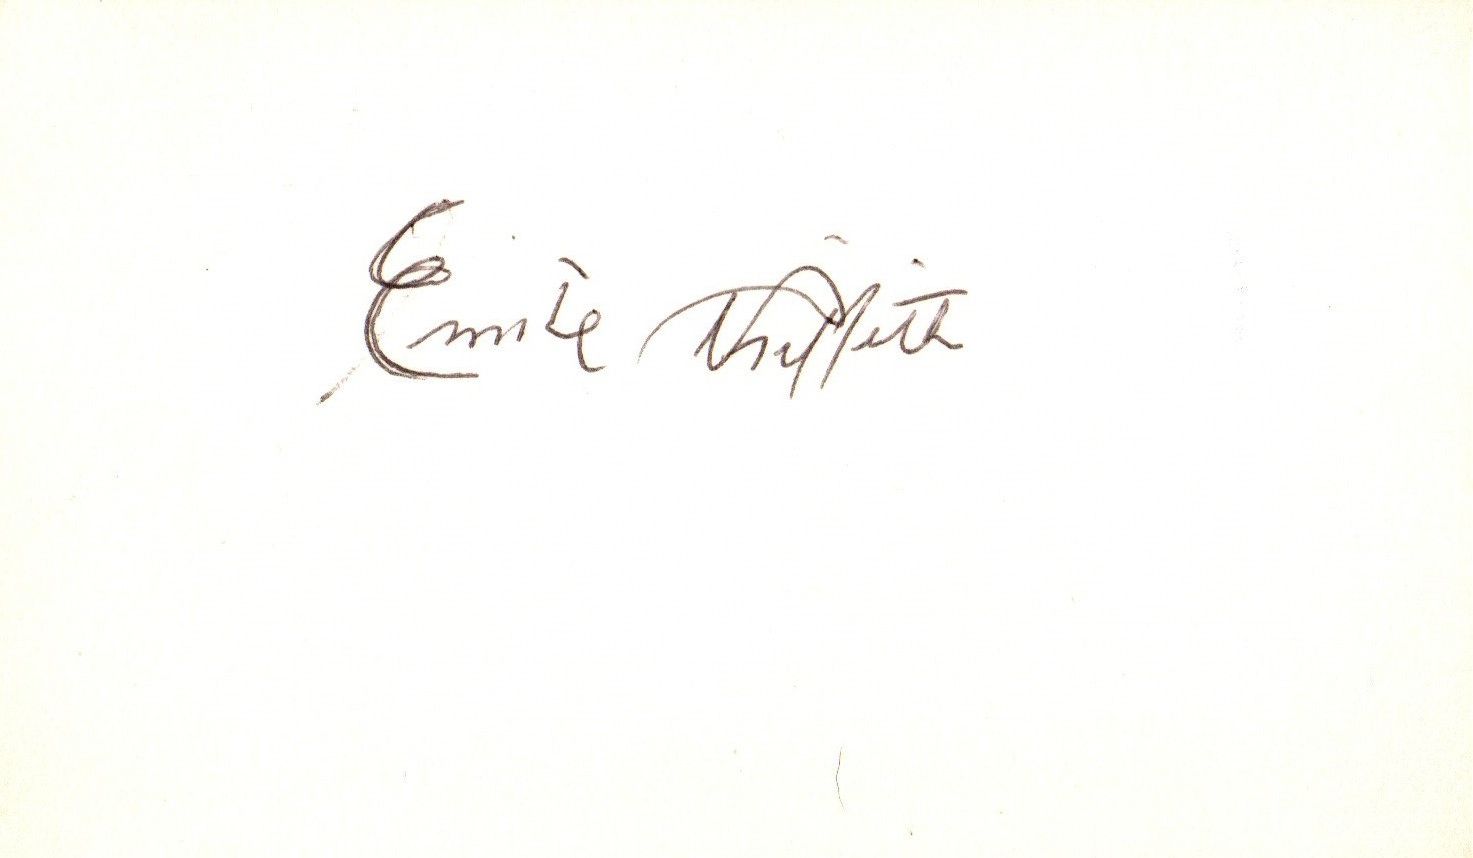 Emile Griffith